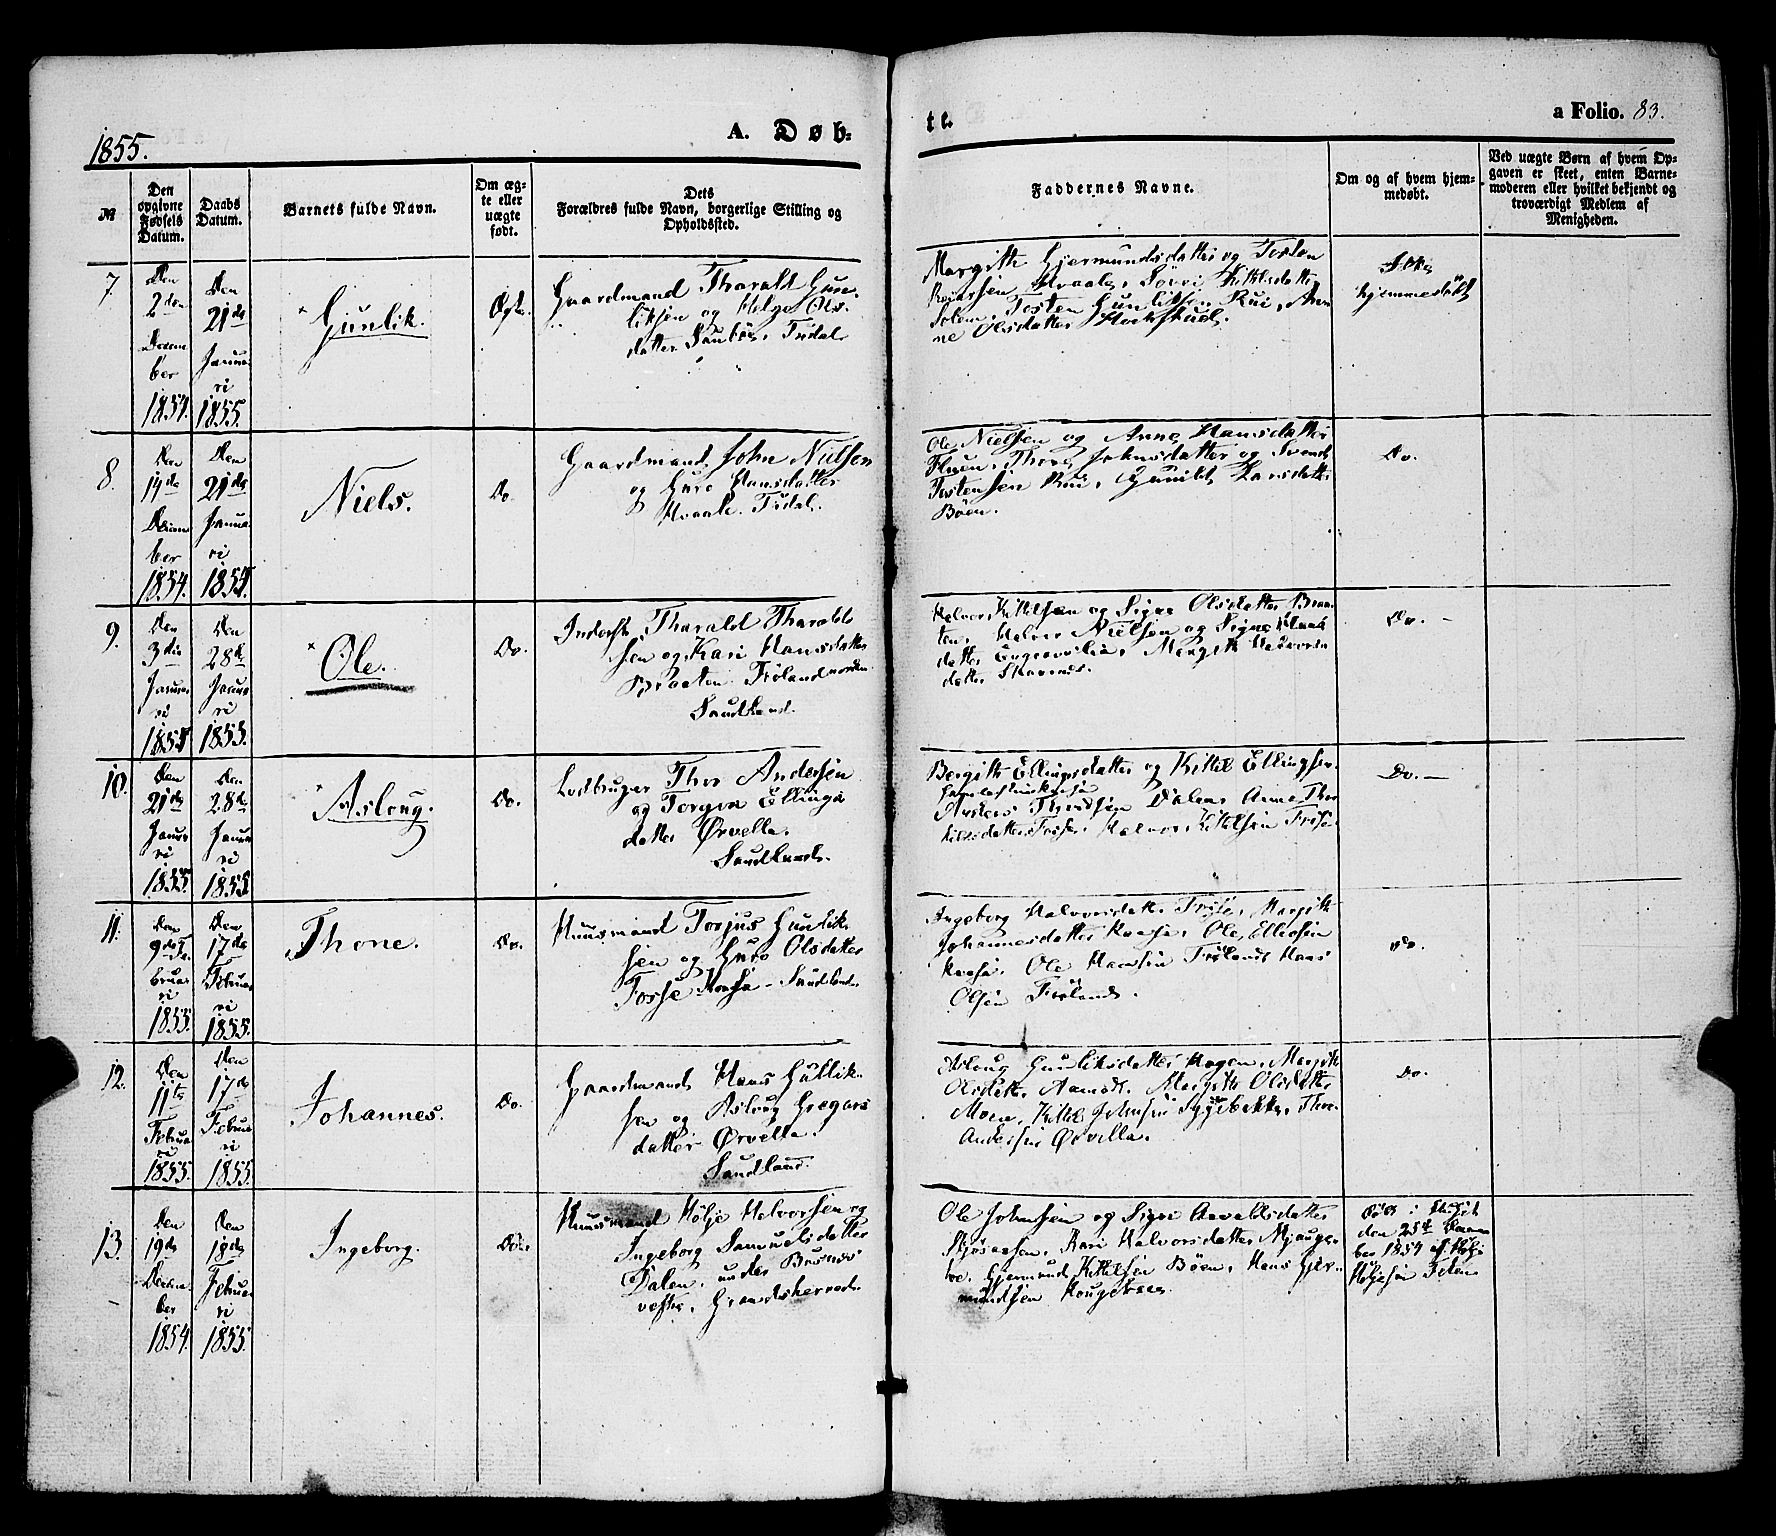 1855.
A. Døb-
te.
a Folio. 83.
№
Den opgivne Fødsels Datum.
Daabs Datum.
Barnets fulde Navn.
Om ægte eller uægte født.
Dets Forældres fulde Navn, borgerlige Stilling og Opholdssted.
Faddernes Navne.
Om og af hvem hjemmedøbt.
Ved uægte Børn af hvem Opgaven er skeet, enten Barnemoderen eller hvilket bekjendt og troværdigt Medlem af Menigheden.
7.
Den
2den
Decem
ber
1854.
Den
21de
Janua
ri
1855.
Gunlik.
Ægte.
Gaardmand Tharald Gun-
liksen og Helge Ols-
datter
Margith Gjermundsdatter og Tosten
Hvaale,
Tosten Gunliksen Rui,
ne Olsdatter
Ikke
hjemmedøbt
8.
Den
14de
Decem
ber
1854.
Den
21de
Janua
ri
1855.
Niels.
Do.
Gaardmand John Nielsen
og Guro Hansdatter
Hvaale.
Ole Nielsen og Anne Hansdatter
Thore Johnsdatter og Svend
Tostensen Rui, Gunild Hansdatter
Bøen.
Do.
9.
Den
3die
Janua
ri
1855
Den
28de
Janua
ri
1855.
Ole.
Do.
Inderst Tharald Tharalds
sen og Kari Hansdatter
Braaten Frøland nordre
Saudland.
Halvor Kittelsen og Signe Olsdatter Braa-
ten, Halvor Nielsen og Signe
datter Margith Halvors
datter
Do. —
10.
Den
21de
Janua
ri
1855.
Den
28de
Janua
ri
1855.
Asloug.
Do.
Lodbruger Thor Andersen
og Torgon Ellings
datter Ørvella.
Saudland.
Bergith Ellingsdatter og Kittil Ellingsen
Anders Thorsen Dalen, Anne Thor
kilsdatter Fosse, Halvor Kittelsen
Do. —
11.
Den
9de Fe
brua
ri
1855.
Den
17de
Februa
ri
1855.
Thone.
Do.
Huusmand Torjus Gunlik-
sen og Guro Olsdatter
Fosse Kaasa - Saudland
Ingeborg Halvorsdatter Margith
Johannesdatter Kaasa, Ole Ellevsen
Kaasa, Ole Hansen Frøland, Hans
Olsen Frøland.
do.
12.
Den
11te
Februa
ri
1855.
Den
17de
Februa
ri
1855.
Johannes.
Do.
Gaardmand Hans Gullik-
sen og Aslong Gregars
datter Ørvella.
Saudland.
Aslaug Gunliksdatter Hagen, Margith
Olsdatter Margith Olsdatter
Moen, Kittil Johnsen Thor
Andersen Ørvella.
Do.
13.
Den
19de
Decem
ber
1854.
Den
18de
Februa
ri
1855.
Ingeborg.
Do.
Huusmand Hølje Halvorsen og
Ingeborg Samuelsdatter
Dalen, under Busnes
vestre, Gransherred.
Ole Johnsen og Signe Arvaldsdatter
Kari Halvorsdatter
Gjermund Kittelsen Bøen, Hans Gjer-
mundsen
Døbt i
den 25de Decem
ber 1854 af Hølje
Høljesen